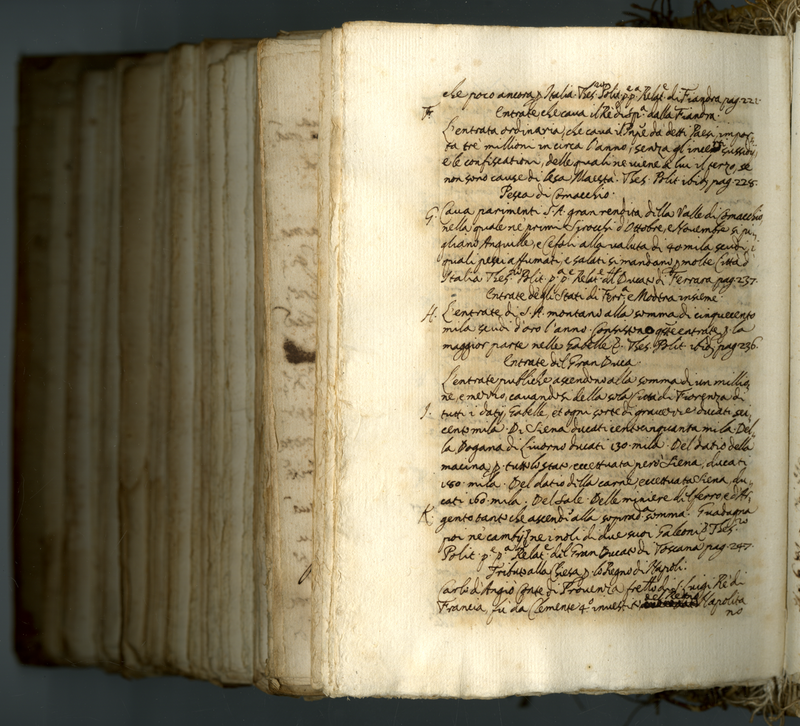 che poco ancora p Italia. Thes. Polit. p.p.a Relat.e di Fiandra pag. 221.
Entrate che cava il Rè di Sp.a dalla Fiandra.
F. L'entrata ordinaria, che cava il Pnpe da detti Paesi, impor,
ta tre millioni in circa l'anno, senza gl'
e le confiscationi, delle quali ne viene à lui il terzo, se
non sono cause di lesa Maestà. Thes. Polit. ibid. pag. 228.
Pesca di Comacchio.
G. Cava parimenti S. A. gran rendita della Valle di Comacchio
nella quale ne primi d'Ottobre, e Novembre si pi,
gliano Anguille, e Cefali alla valuta di 40 mila scudi, i
quali pesci affumati, e salati si mandano p molte Città d'
Italia Thes. Polit. p.a p.e Relat.e del Ducato di Ferrara pag. 237.
Entrate degli Stati di Ferr.a e Modena insieme.
H. L'entrate di S. A. montano alla somma di cinquecento
mila scudi d'oro l'anno. Consistono qste entrate p la
maggior parte nelle Gabelle &. Thes. Polit. ibid. pag. 236.
Entrate del Gran Duca.
L'entrate publiche ascendono alla somma di un millio,
ne, e mezzo, cavandosi della sola Città di Fiorenza di
I. tutti i datij, Gabelle, et ogni sorte di gravezze ducati sei
cento mila. Di Siena ducati cento cinquanta mila. Del
la Dogana di Livorno ducati 130 mila. Del datio della
macina p tutto lo stato eccettuata però Siena, ducati
180 mila. Del datio della carne eccettuata Siena, du,
cati 160 mila. Del Sale. Delle miniere di ferro, e d'Ar,
K. gento tanto che ascend.o alla soprad.a somma. Guadagna
poi ne cambij, e ne i noli di due suoi Galeoni &. Thes.
Polit. p.e p.a Relat.e del Gran Ducato di Toscana pag. 247.
Tributo alla Chiesa p lo Regno di Napoli.
Carlo d'Angiò Conte di Provenza frello di S. Luigi Rè di
Francia, fù da Clemente 4.o investito del Regno Napolita
no